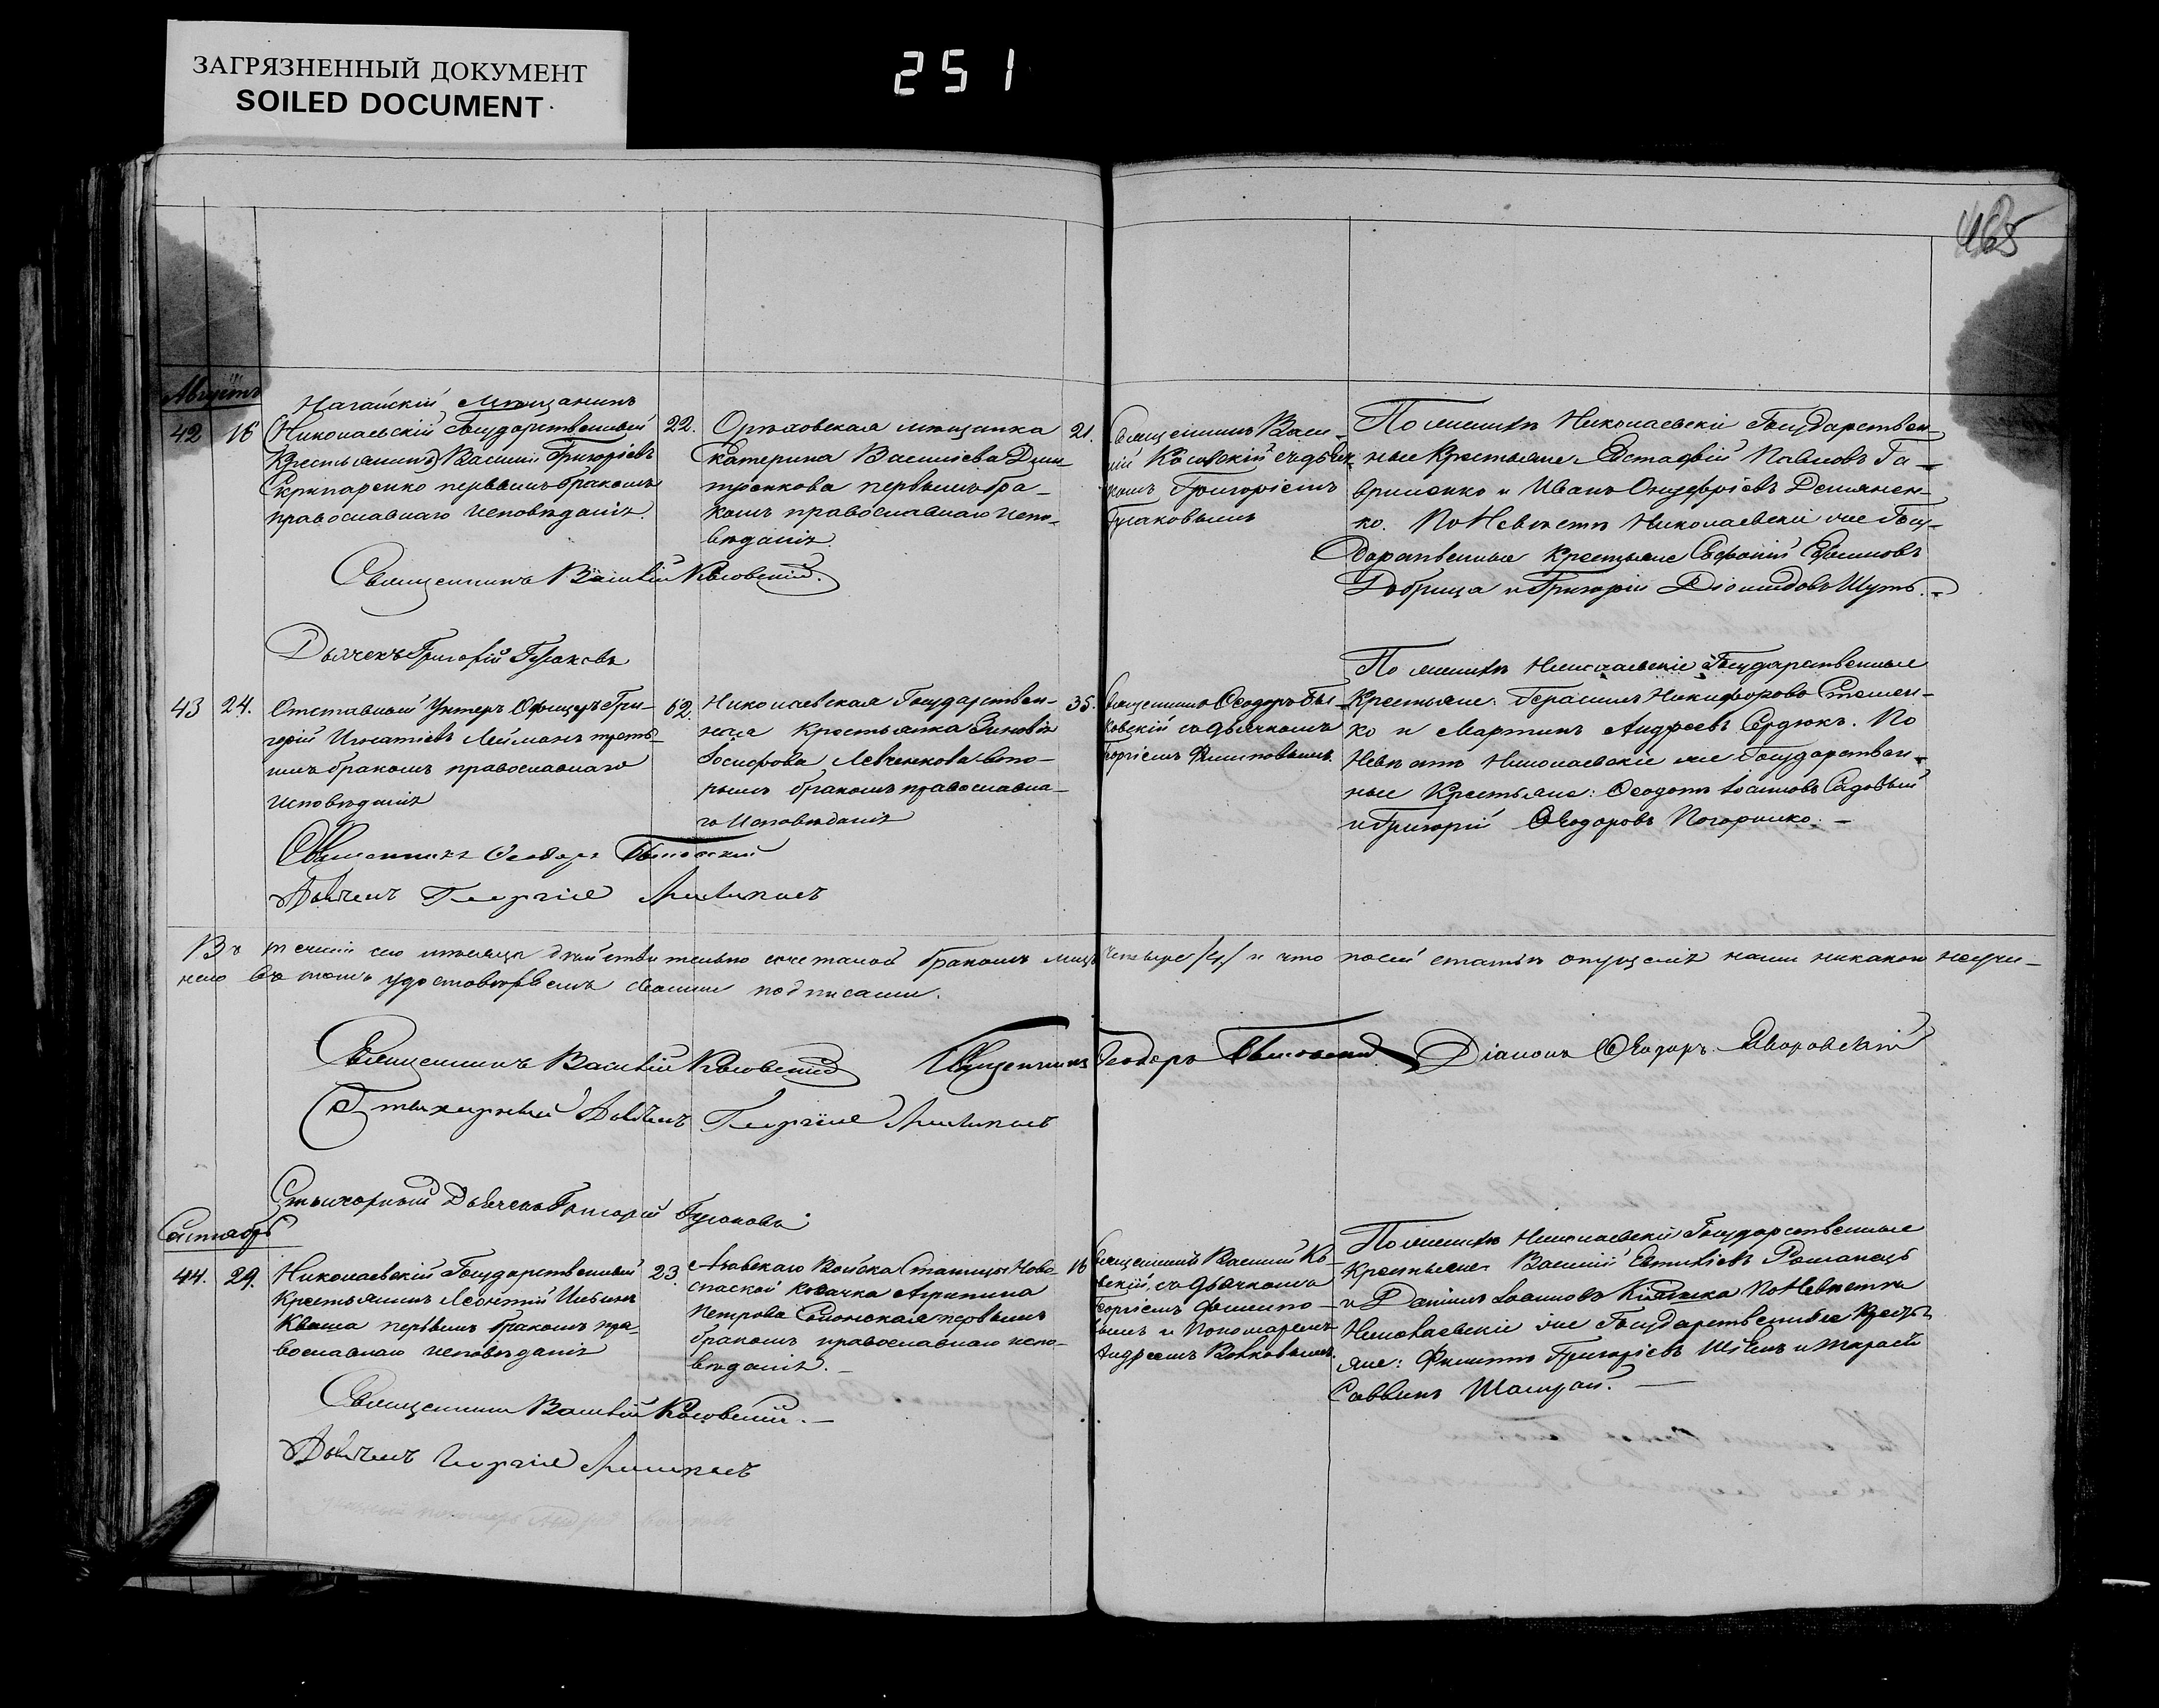 ЗАГРЯЗНЕННЫЙ ДОКУМЕНТ
SOILED DOCUMENT
251
465
Августъ
Нагайскій Мѣщанинъ
42 16 Николаевскій Государственный
Крестьянинъ Василій Григоріевъ
Скрипаренко первымъ бракомъ
православнаго исповѣданія.
22.
Орѣховская мѣщанка
Екатерина Васильева Дми-
тренкова первымъ бра-
комъ православнаго испо-
вѣданія.
21.
Священникъ Васи-
лій Косовскій съ дьяч-
комъ Григоріемъ
Гусаковымъ
По женихѣ Николаевскіе Государствен-
ные Крестьяне Евстафій Павловъ Га-
вриленко и Иванъ Онуфріевъ Демянен-
ко. По Невѣстѣ Николаевскіе же Госу-
дарственные Крестьяне Ефимовъ
Добрица и Григорій Діомидовъ Шуть.
Священникъ Василій Косовскій.
Дьячекъ Григорій Гусаковъ
43 24. Отставный Унтеръ Офицеръ Гри-
горій Игнатіевъ Лейманъ треть-
имъ бракомъ православнаго
исповѣданія
62.
Николаевская Государствен-
ная Крестьянка Зиновія
Іосифова Левченкова вто-
рымъ бракомъ православна-
го исповѣданія
35.
Священникъ Ѳеодоръ Бы-
ковскій съ дьячкомъ
Георгіемъ Филиповымъ.
По женихѣ Николаевскіе Государственные
Крестьяне: Герасимъ Никифоровъ Стешен-
ко и Мартинъ Андреевъ Сердюкъ. По
Невѣстѣ Николаевскіе же Государствен-
ные Крестьяне: Ѳеодотъ Іоанновъ Садовый
и Григорій Ѳеодоровъ Погорилко.
Священникъ Ѳеодоръ Быковскій
Дьячекъ Георгій
Въ теченіи сего мѣсяца дѣйствительно сочетаной бракомъ лицъ четыре /4/ и что посей статьи опущенія нами никакого неучи-
нено въ томъ удостовѣряемъ своими подписами.
Священникъ Василій Косовскій Священникъ Ѳеодоръ Быковскій Діаконъ Ѳеодоръ Яворовскій
Стихарный Дьячекъ Георгій
Стихорный Дьячекъ Григорій Гусаковъ
Сентябрь
44. 29. Николаевскій Государственный
Крестьянинъ Леонтій Ильинъ
Кваша первымъ бракомъ пра-
вославнаго исповѣданія
23.
Азовскаго Войска Станицы Ново-
спаской козачка Агрипина
Петрова первымъ
бракомъ православнаго испо-
вѣданія.
16
Священникъ Василій Ко-
совскій, съ дьячкомъ
Георгіемъ Филипо-
вымъ и Пономаремъ
Андреемъ Волковымъ.
По женихѣ Николаевскіе Государственные
Крестьяне Василій Евтихіевъ Романецъ
и Даніилъ Іоанновъ По Невѣстѣ
Николаевскіе же Государственные Кресть-
яне: Филиппъ Григоріевъ и Тарасій
Саввинъ Шамрай.
Священникъ Василій Косовскій.
Дьячекъ Георгій